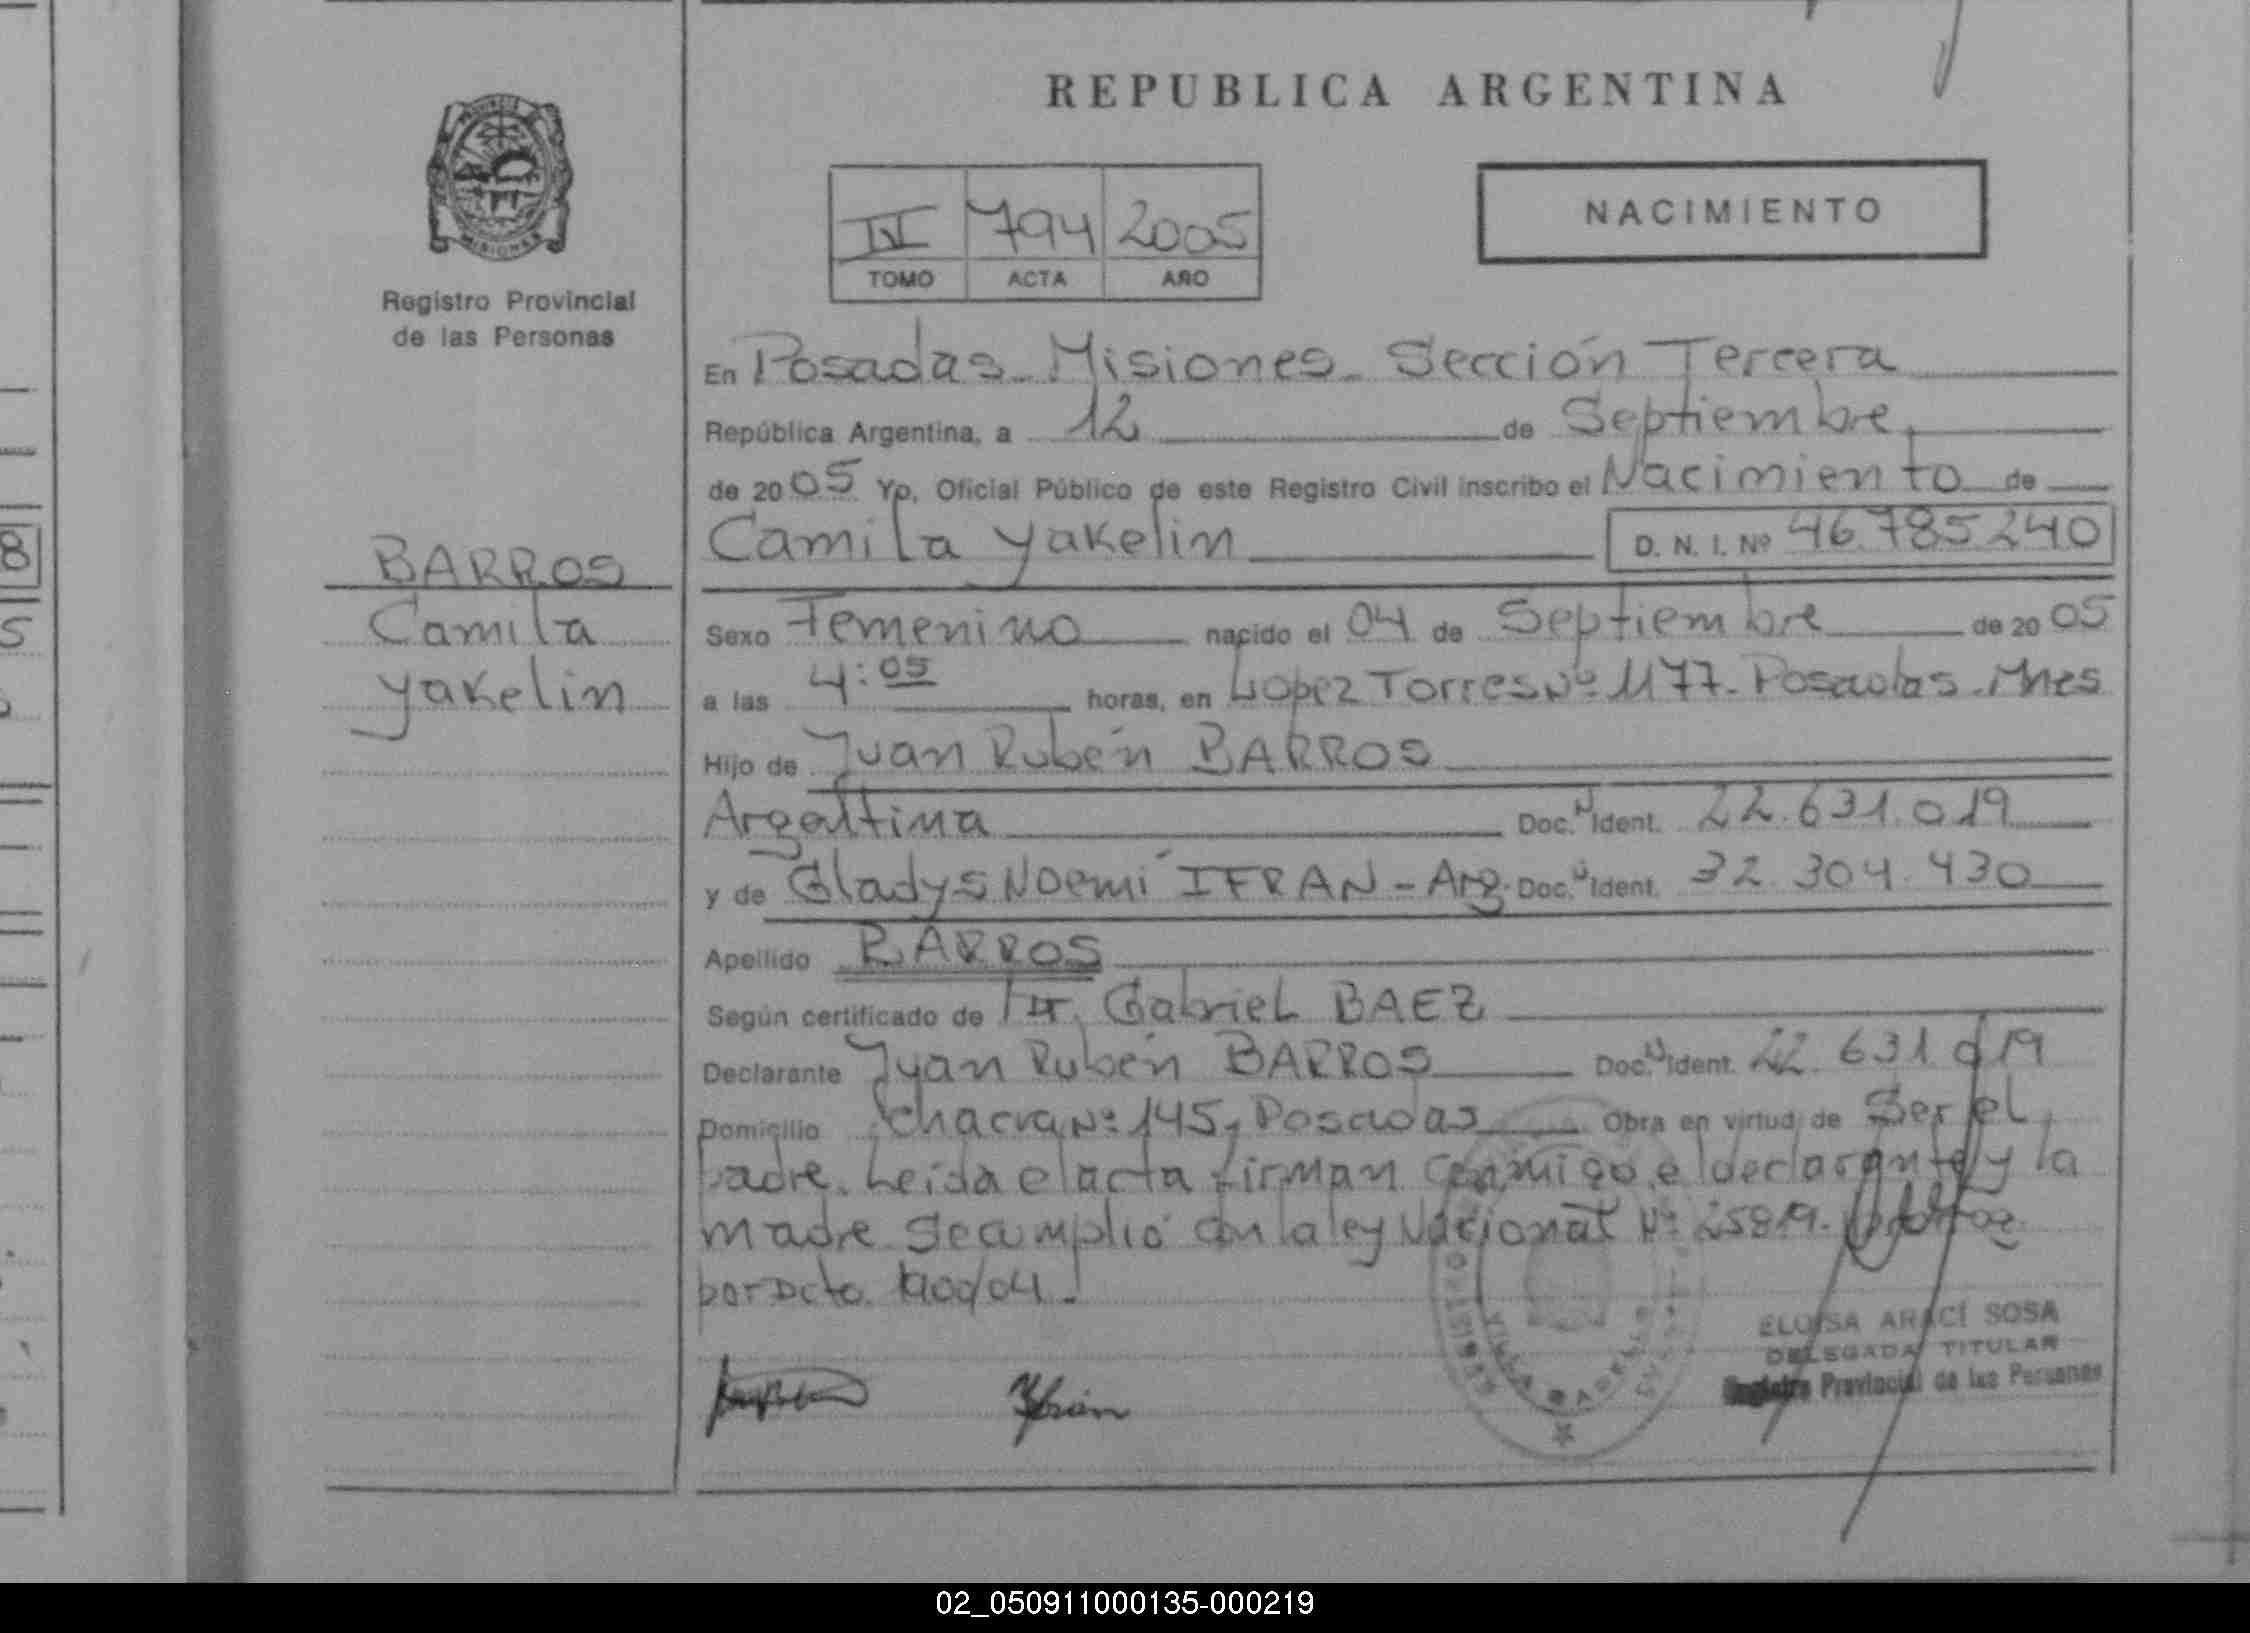 REPUBLICA ARGENTINA
PROVINCIA
MISIONES
Registro Provincial
de las Personas
IV 794 2005
TOMO ACTA AÑO
NACIMIENTO
En Posadas - Misiones - Sección Tercera
República Argentina, a 12 de Septiembre
de 2005 Yo, Oficial Público de este Registro Civil inscribo el Nacimiento de
Camila Yakelin D. N. I. Nº 46.785.240
BARROS
Camila
Yakelin
Sexo Femenino nacido el 04 de Septiembre de 2005
a las 4:05 horas, en Lopez Torres Nº 1177 - Posadas - Mnes
Hijo de Juan Rubén BARROS
Argentina Doc. N Ident. 22.631.019
y de Gladys Noemí IFRAN - Arg. Doc. N Ident. 32.304.430
Apellido BARROS
Según certificado de Gabriel BAEZ
Declarante Juan Rubén BARROS Doc. N Ident. 22.631.019
Domicilio chacra Nº 145, Posadas Obra en virtud de Ser el
padre. Leída el acta firman conmigo el declarante y la
madre. Se cumplió con la ley Nacional Nº 25819.
por Dcto. 1900/04.-
ELOISA ARACÍ SOSA
DELEGADA TITULAR
Registro Provincial de las Personas
8
5
02_050911000135-000219